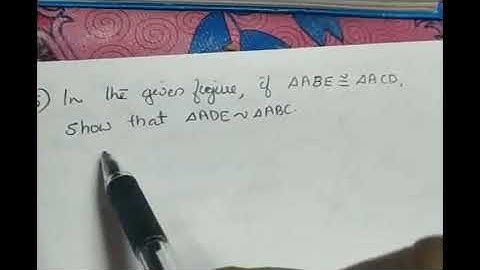 6) In the given figure, if △ABE ≅ △ACD,
show that △ADE ~ △ABC.